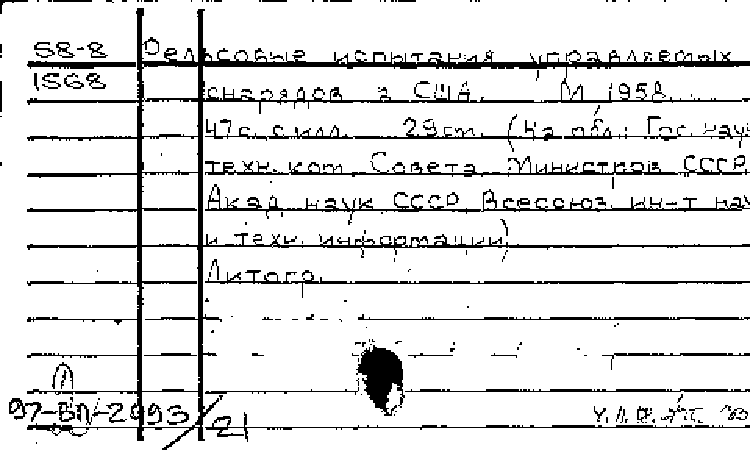 58-8 Рельсовые испытания управляемых
1568 снарядов в США. М 1958.
47с. с илл. 29см. (На обл.: Гос. науч
техн. ком. Совета Министров СССР.
Акад. наук СССР. Всесоюз. ин-т нау
и техн. информации)
Литогр.
97-ВП-2993/21